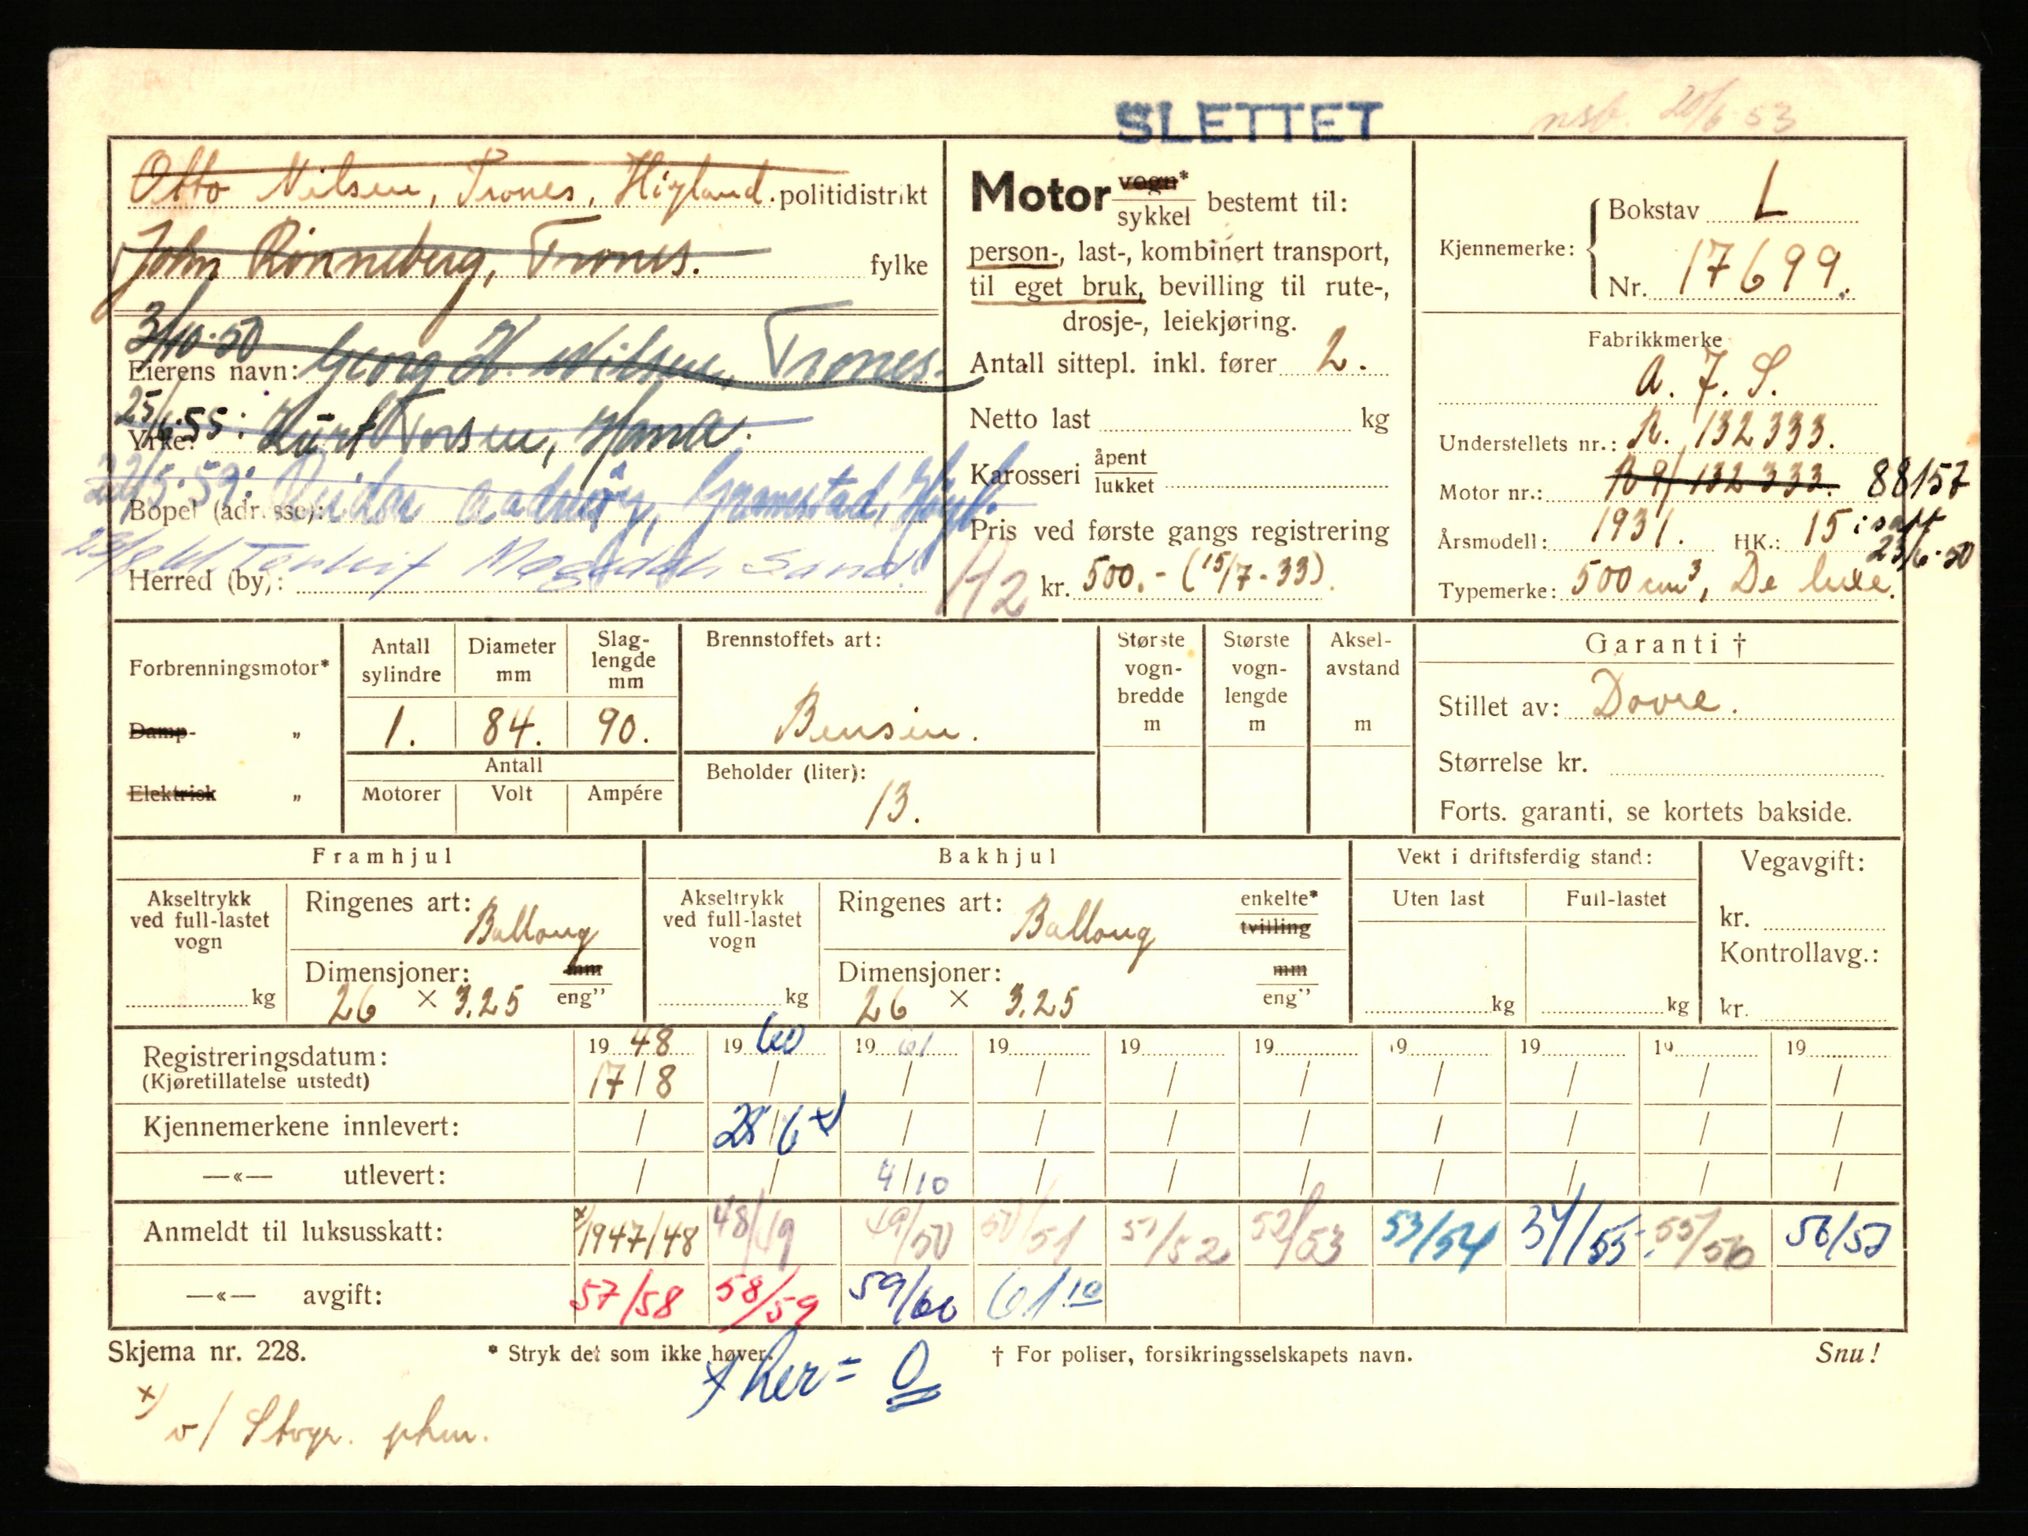 SLETTET
nsb. 20/6 53
Otto Nilsen, Trones, Høyland. politidistrikt
John Rönneberg, Trones. fylke
3/10-50
Eierens navn: Georg H. Nilsen, Trones.
25/6.55:
Yrke: Kurt Torsen, Hana.
22/5.59:
Bopel (adresse): Reidar Gramstad, Høyl.
Herred (by): Sand.
Motor vogn* / sykkel bestemt til:
person-, last-, kombinert transport,
til eget bruk, bevilling til rute-,
drosje-, leiekjøring.
Antall sittepl. inkl. fører 2.
Netto last kg
Karosseri åpent / lukket
Pris ved første gangs registrering
H2 kr. 500.- (15/7-33).
Kjennemerke: Bokstav L
Nr. 17699.
Fabrikkmerke
A. J. S.
Understellets nr.: R. 132333.
Motor nr.: R 9/132333. 88157
Årsmodell: 1931. HK.: 15 : satt 23/6-50
Typemerke: 500 cm³, De luxe.
Forbrenningsmotor*
Damp- „
Elektrisk „
Antall sylindre
1.
Diameter mm
84.
Slaglengde mm
90.
Antall
Motorer Volt Ampére
Brennstoffets art:
Bensin.
Beholder (liter):
13.
Største vognbredde m
Største vognlengde m
Akselavstand m
Garanti †
Stillet av: Dovre.
Størrelse kr.
Forts. garanti, se kortets bakside.
Framhjul
Akseltrykk ved full-lastet vogn
kg
Ringenes art: Ballong
Dimensjoner: mm / eng”
26 × 3.25
Bakhjul
Akseltrykk ved full-lastet vogn
kg
Ringenes art: Ballong enkelte* / tvilling
Dimensjoner: mm / eng”
26 × 3.25
Vekt i driftsferdig stand:
Uten last Full-lastet
kg kg
Vegavgift:
kr.
Kontrollavg.:
kr.
Registreringsdatum: 19 48 19 60 19 61 19 19 19 19 19 19 19
(Kjøretillatelse utstedt) 17/8 / / / / / / / / /
Kjennemerkene innlevert: / 28/6 x) / / / / / / / /
—«— utlevert: / / 4/10 / / / / / / /
Anmeldt til luksusskatt: x)1947/48 48/49 49/50 50/51 51/52 52/53 53/54 54/55 55/56 56/57
—«— avgift: 57/58 58/59 59/60 61/10
Skjema nr. 228. * Stryk det som ikke høver. † For poliser, forsikringsselskapets navn. Snu!
x her = 0
x) v/ Stvgr. phm.